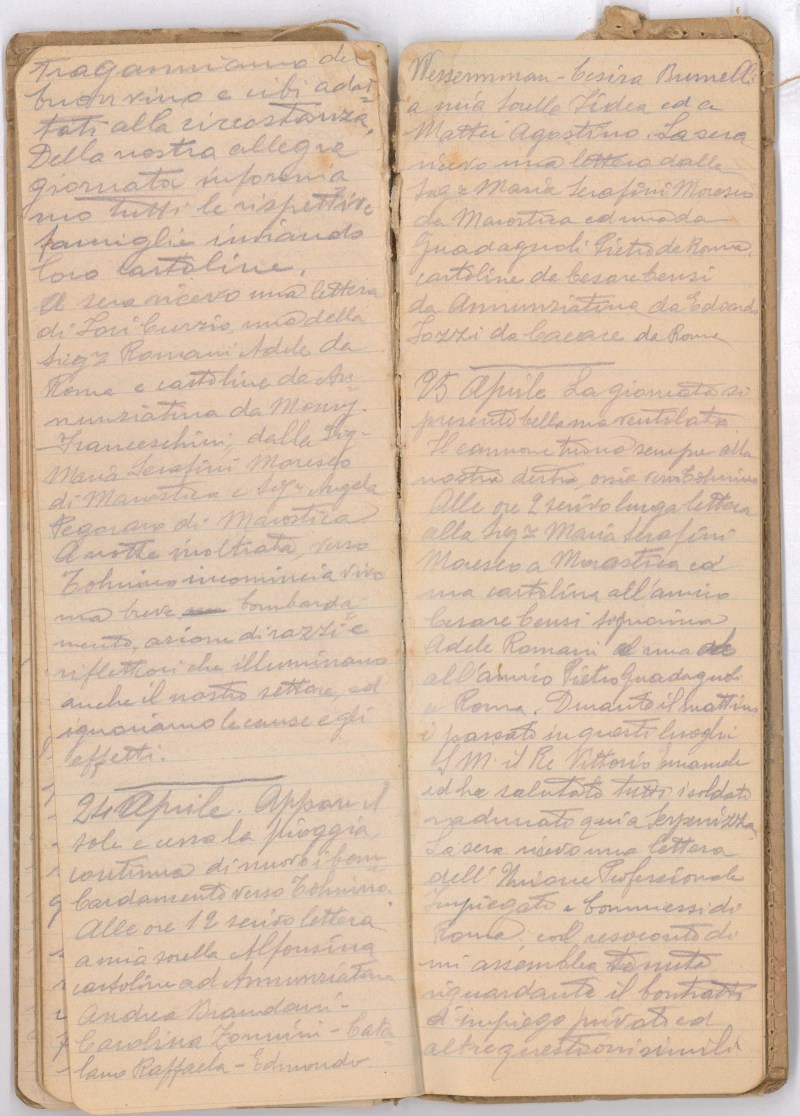 traganniamo del
buon vino e cibi adat=
tati alla circostanza.
Della nostra allegra
giornata informia
mo tutti le rispettive
famiglie inviando
loro cartoline.
A sera ricevo una lettera
di Lori Curzio, una della
Sig.ra Romani Adele da
Roma e cartoline da An
nunziatina da Mons.
Franceschini, dalla Sig.
Maria Serafini Moresco
di Marostica e Sig.ra Angela
Pegoraro di Marostica
A notte inoltrata, verso
Tolmino incomincia vivo
ma breve bombarda
mento, azione di razzi e
riflettori che illuminano
anche il nostro settore, ed
ignoriamo le cause e gli
effetti.
24 Aprile. Appare il
sole e cessa la pioggia
continua di nuovo i bom
bardamento verso Tolmino
Alle ore 12 scrivo lettera
a mia sorella Alfonsina
cartoline ad Annunziatina
Andrea Brandani -
Carolina Tonnini - Cata
lano Raffaela - Edmondo
Wessermman - Cesira Brunelli
a mia sorella Fidea ed a
Mattei Agostino. La sera
ricevo una lettera dalla
Sig.ra Maria Serafini Moresco
da Marostica ed una da
Guadagnoli Pietro da Roma,
cartoline da Cesare Censi
da Annunziatina da Edoardo
Iozzi da Cacace da Roma
25 Aprile La giornata si
presenta bella ma ventilata
Il cannone tuona sempre alla
nostra destra, ossia verso Tolmino
Alle ore 2 scrivo lunga lettera
alla Sig.ra Maria Serafini
Moresco a Marostica ed
una cartolina all'amico
Cesare Censi signorina
Adele Romani una
all'amico Pietro Guadagnoli
a Roma. Durante il mattino
è passato in questi luoghi
S. M. il Re Vittorio Emanuele
ed ha salutato tutti i soldato
radunato qui a Serpenizza
La sera ricevo una lettera
dell'Unione Professionale
Impiegato e Commessi di
Roma, col resoconto di
un assemblea tenuta
riguardante il contratti
d'impiego privato ed
altre questioni simili